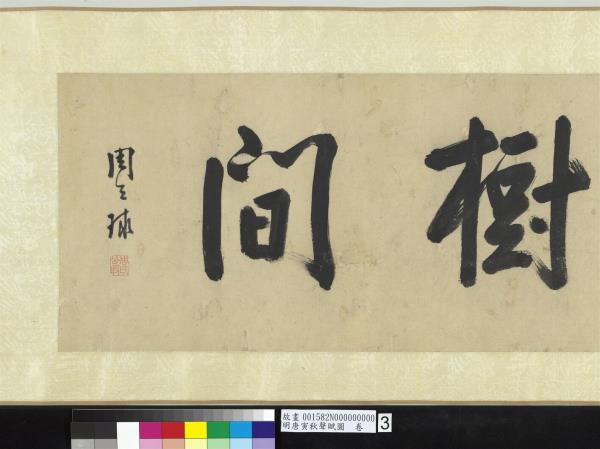 樹間
周天球
故畫 001582N000000000
明唐寅秋聲賦圖 卷
3